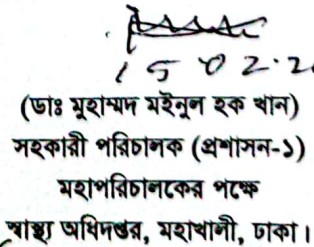 15 02.2
(ডাঃ মুহাম্মদ মইনুল হক খান)
সহকারী পরিচালক (প্রশাসন-১)
মহাপরিচালকের পক্ষে
স্বাস্থ্য অধিদপ্তর, মহাখালী, ঢাকা।